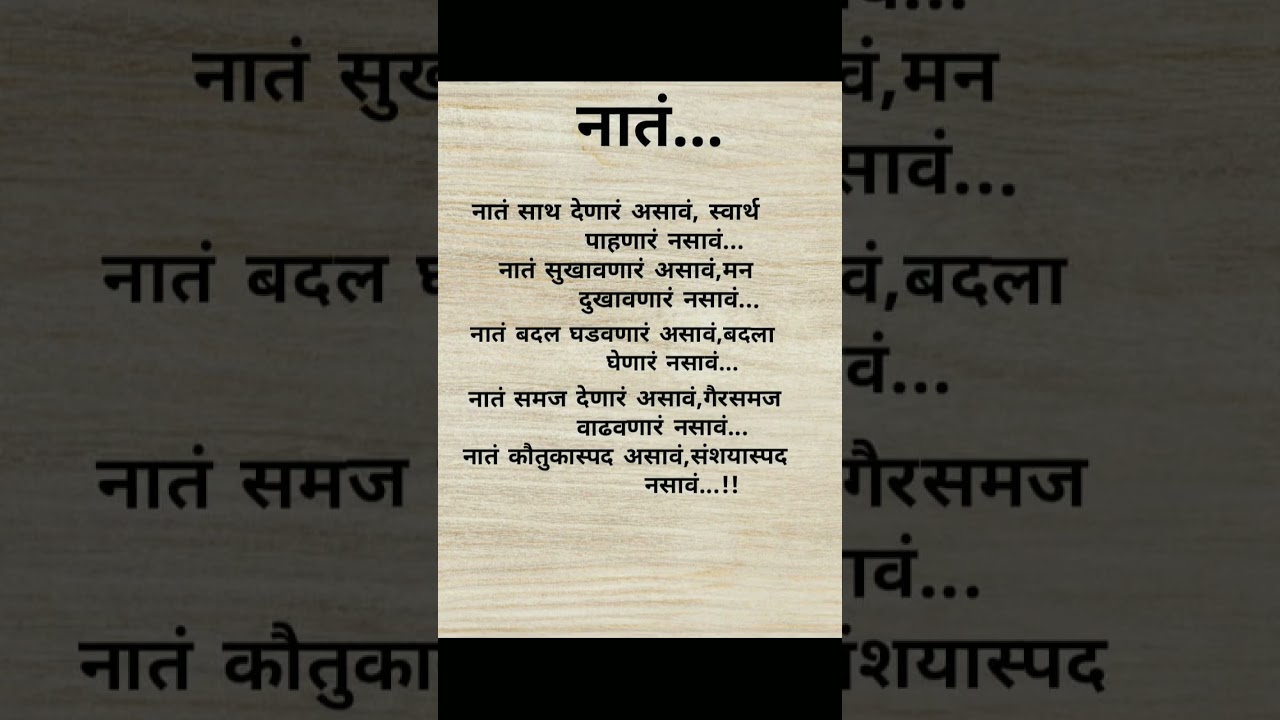 नातं...
नातं साथ देणारं असावं, स्वार्थ
पाहणारं नसावं...
नातं सुखावणारं असावं,मन
दुखावणारं नसावं...
नातं बदल घडवणारं असावं,बदला
घेणारं नसावं...
नातं समज देणारं असावं,गैरसमज
वाढवणारं नसावं...
नातं कौतुकास्पद असावं,संशयास्पद
नसावं...!!